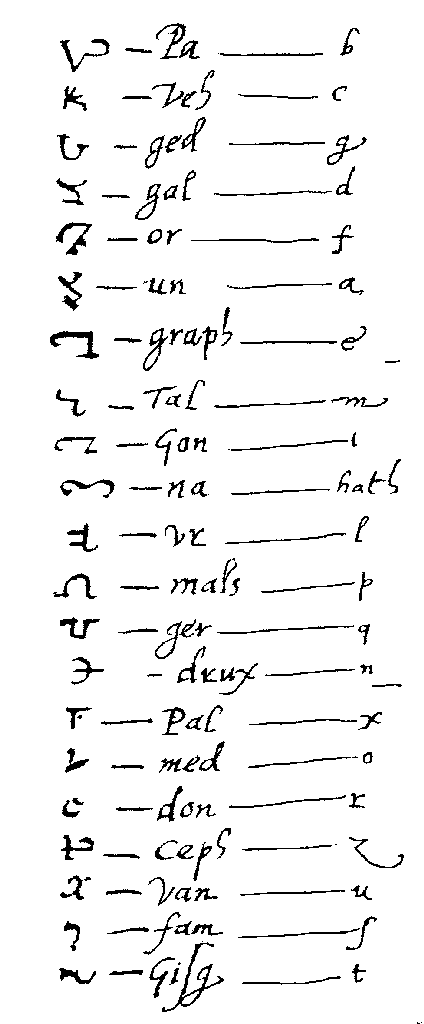 — Pa — b
— Veh — c
— ged — g
— gal — d
— or — f
— un — a
— graph — e
— Tal — m
— Gon — i
— na — hath
— vr — l
— mals — p
— ger — q
— drux — n
— Pal — x
— med — o
— don — r
— ceph — z
— van — u
— fam — ſ
— Giſg — t